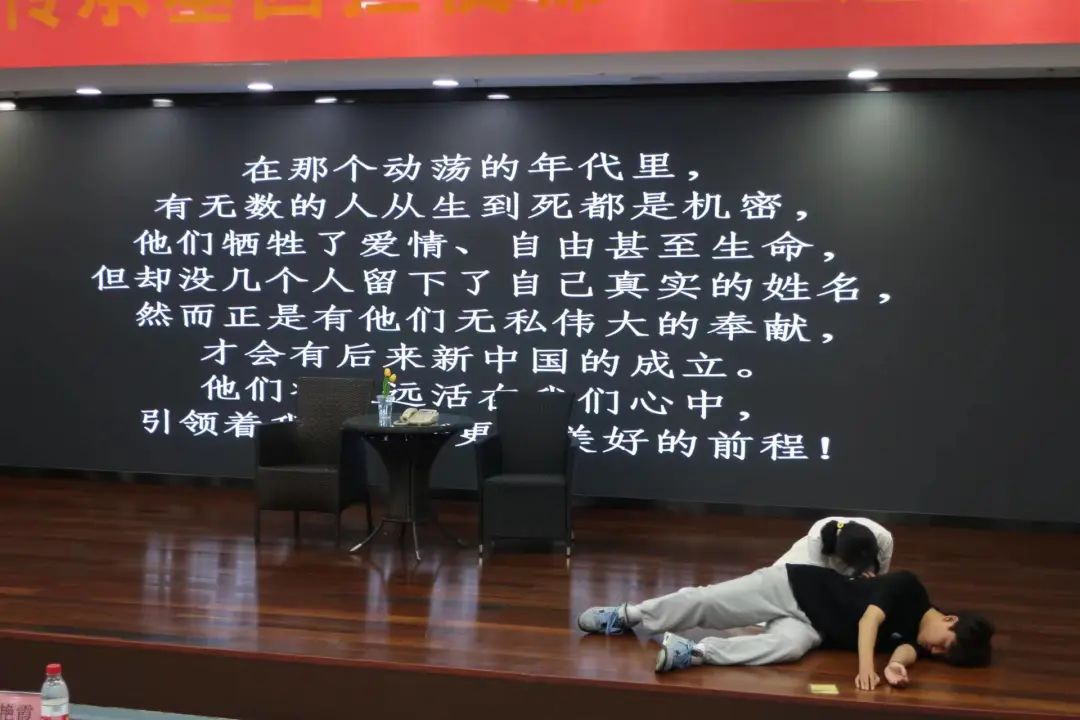 传承基因
在那个动荡的年代里，
有无数的人从生到死都是机密，
他们牺牲了爱情、自由甚至生命，
但却没几个人留下了自己真实的姓名，
然而正是有他们无私伟大的奉献，
才会有后来新中国的成立。
他们 远活在我们心中，
引领着我 更 美好的前程！
艳霞